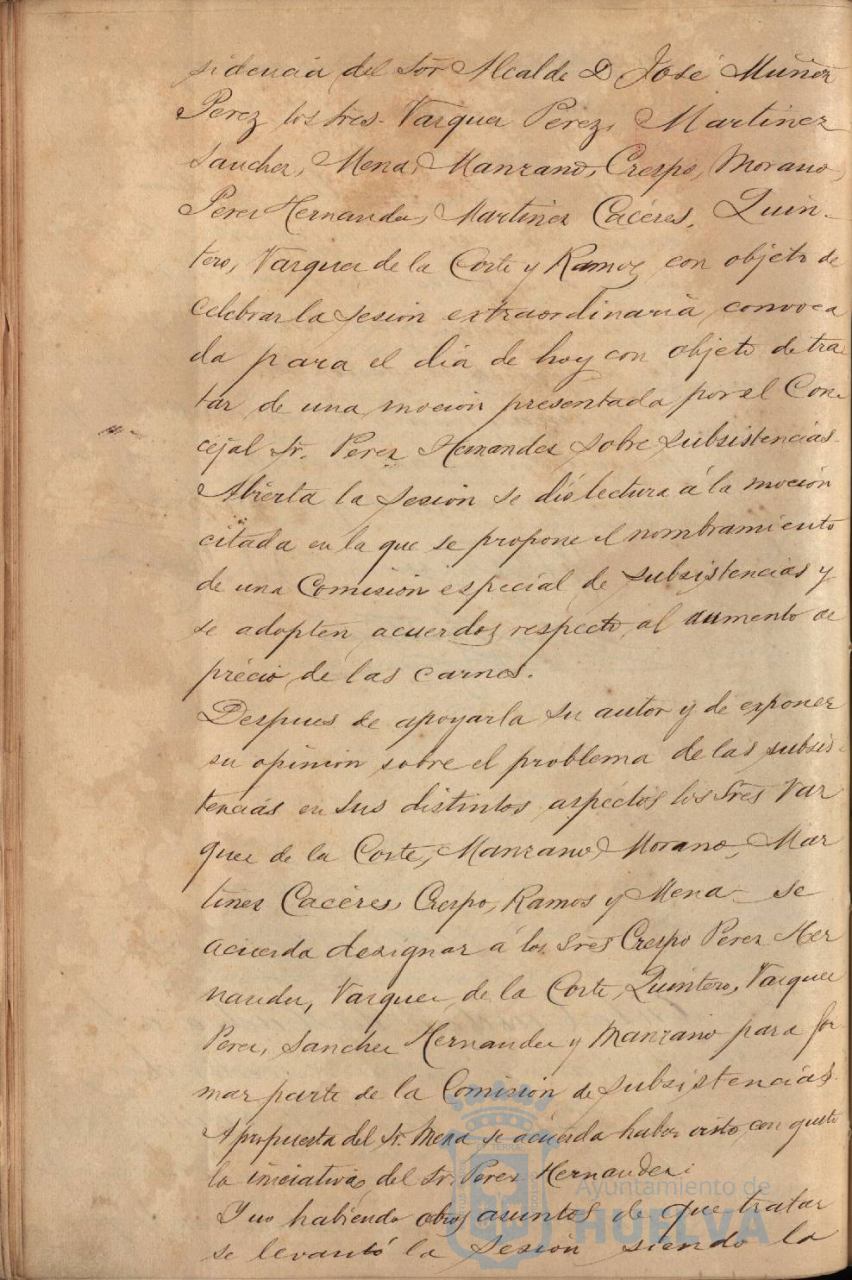 sidencia del Sor Alcalde D José Muñoz
Perez los Sres. Vazquez Perez, Martinez
Sanchez, Mena, Manzano, Crespo, Morano,
Perez Hernandez, Martinez Cacéres, Quin-
tero, Vazquez de la Corte y Ramos, con objeto de
celebrar la sesion extraordinaria, convoca
da para el dia de hoy con objeto de tra
tar de una mocion presentada por el Con-
cejal Sr. Perez Hernandez sobre subsistencias.
Abierta la sesion se dió lectura á la mocion
citada en la que se propone el nombramiento
de una Comision especial de subsistencias y
se adopten acuerdos respecto al aumento de
precio de las carnes.
Despues de apoyarla su autor y de exponer
su opinion sobre el problema de las subsis-
tencias en sus distintos aspectos los Sres Vaz
quez de la Corte, Manzano, Morano, Mar
tinez Cacéres, Crespo, Ramos y Mena se
acuerda designar á los Sres Crespo Perez Her
nandez, Vazquez de la Corte, Quintero, Vazquez
Perez, Sanchez Hernandez y Manzano para for
mar parte de la Comision de subsistencias.
A propuesta del Sr. Mena se acuerda haber visto con gusto
la iniciativa del Sr. Perez Hernandez.
Y no habiendo otros asuntos de que tratar
se levantó la sesion siendo la
Ayuntamiento de
HUELVA